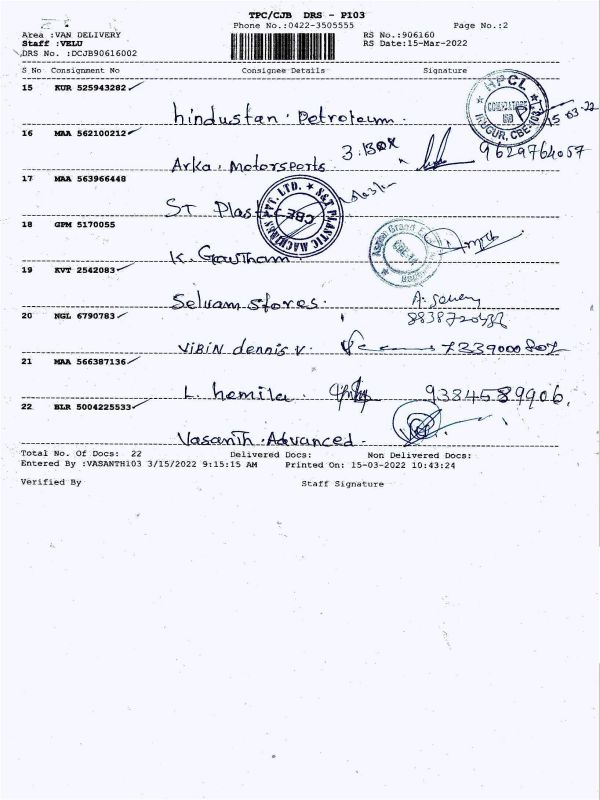 TPC/CJB DRS - P103
Phone No.:0422-3505555 Page No.:2
Area :VAN DELIVERY RS No.:906160
Staff :VELU RS Date:15-Mar-2022
DRS No. :DCJB90616002
S No Consignment No Consignee Details Signature
15 KUR 525943282
hindustan. Petroleum.
HPCL
15-03-22
16 MAA 562100212
Arka. Motorsports. 3.BOX 9629764057
17 MAA 563966448
ST Plast
S&T PLASTIC MACHINES PVT. LTD.
CBE
18 GPM 5170055
K. Gowtham
19 KVT 2542083
Selvam stores.
20 NGL 6790783
ViBiN dennis v. 7339000807
21 MAA 566387136
L. hemila. 9384589906.
22 BLR 5004225533
Vasanth. Advanced.
Total No. Of Docs: 22 Delivered Docs: Non Delivered Docs:
Entered By :VASANTH103 3/15/2022 9:15:15 AM Printed On: 15-03-2022 10:43:24
Verified By Staff Signature